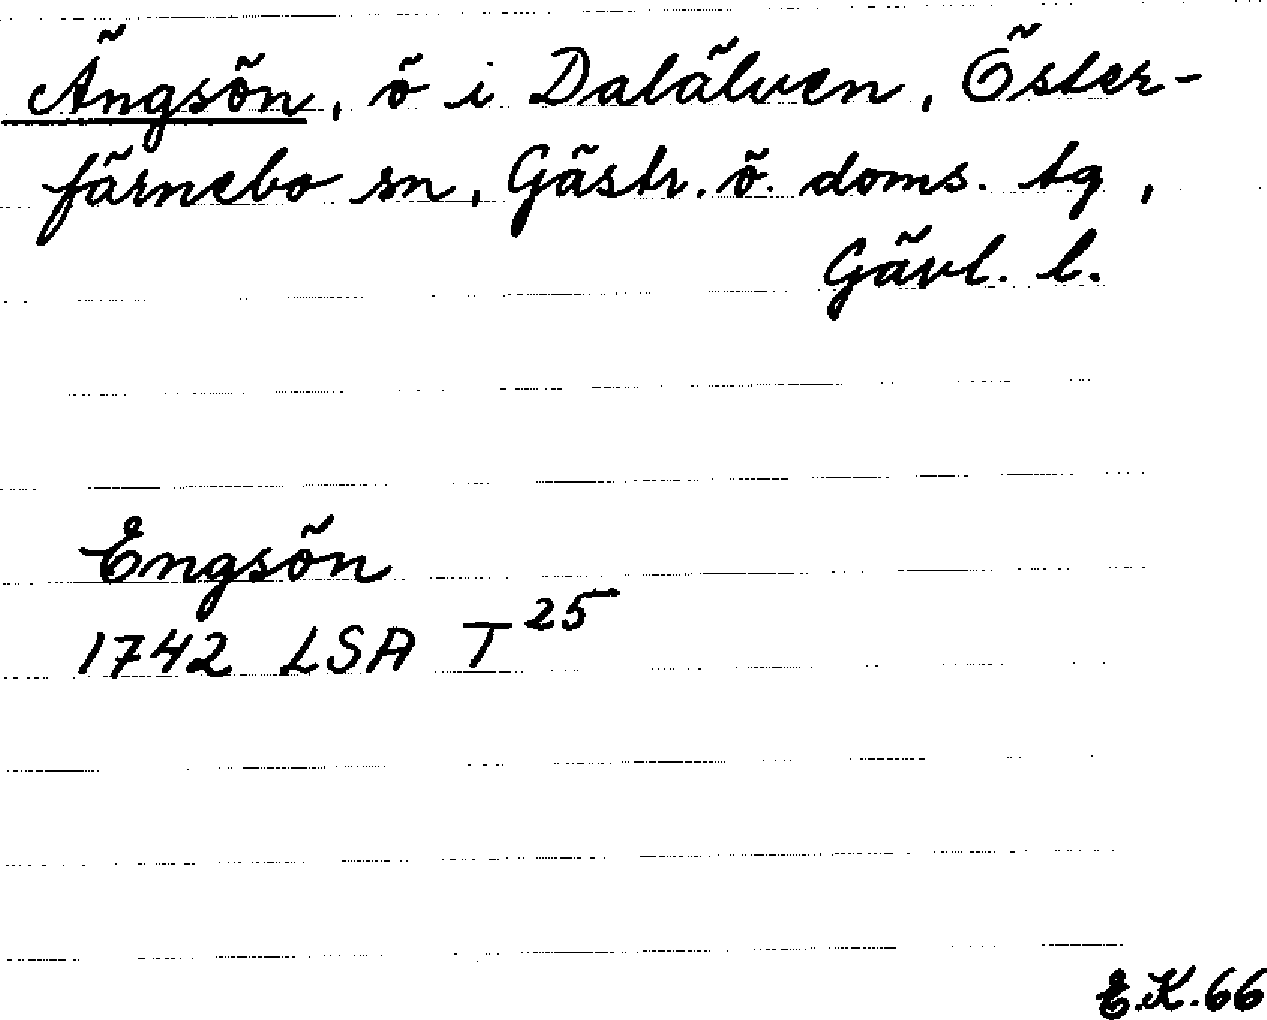 Ängsön, ö i Dalälven, Öster-
färnebo sn, Gästr. ö. doms. tg,
Gävl. l.
Engsön
1742 LSA T 25
E.K.66